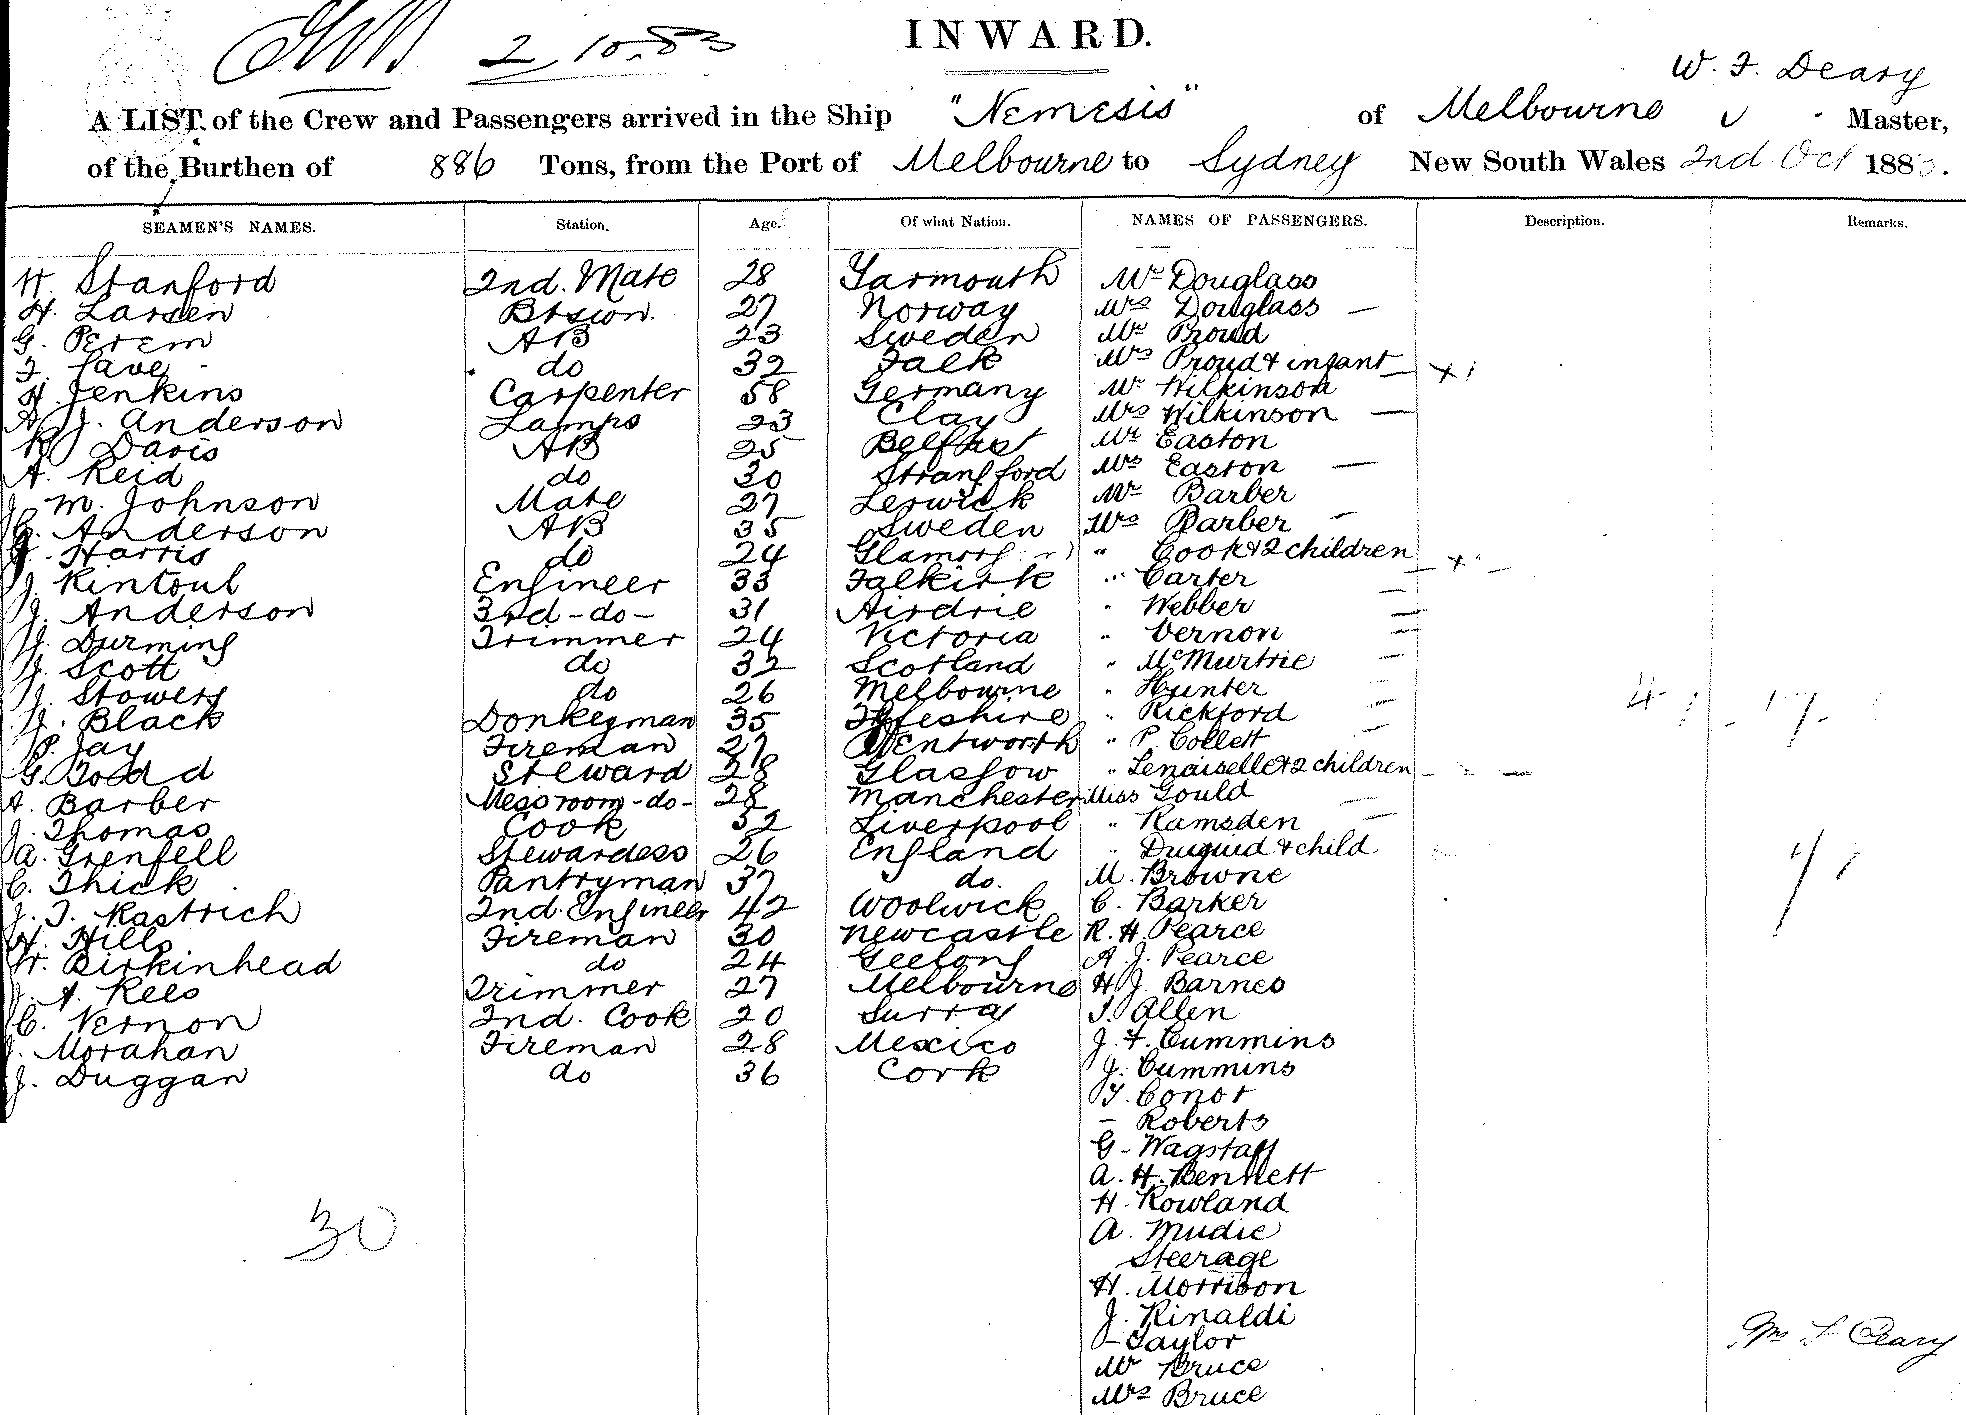 2 10.83
INWARD.
W. F. Deary
A LIST of the Crew and Passengers arrived in the Ship "Nemesis" of Melbourne Master,
of the Burthen of 886 Tons, from the Port of Melbourne to Sydney New South Wales 2nd Oct 1883.
SEAMEN'S NAMES. Station. Age. Of what Nation. NAMES OF PASSENGERS. Description. Remarks.
H. Stanford 2nd. Mate 28 Yarmouth Mr Douglass
H. Larsen Btswn. 27 Norway Mrs Douglass —
G. Perem AB 23 Sweden Mr Proud
do 32 Mrs Proud & infant — x 1
H. Jenkins Carpenter 58 Germany Mr Wilkinson
A. J. Anderson Lamps 23 Clay Mrs Wilkinson —
R. Davis AB 25 Belfast Mr Easton
A. Reid do 30 Strangford Mrs Easton —
J. M. Johnson Mate 27 Lerwick Mr Barber
G. Anderson AB 35 Sweden Mrs Barber —
J. Harris do 24 " Cook & 2 children
J. Kintoul Engineer 33 Falkirk " Carter
J. Anderson 3rd - do - 31 Airdrie " Webber
J. Durming Trimmer 24 Victoria " Vernon
J. Scott do 32 Scotland " McMurtrie
J. Stowers do 26 Melbourne " Hunter
J. Black Donkeyman 35 Fifeshire " Rickford
P. Jay Fireman 27 Wentworth " P. Collett
G. Todd Steward 28 Glasgow " Lenoiselle & 2 children
A. Barber Messroom - do - 28 Manchester Miss Gould
J. Thomas Cook 32 Liverpool " Ramsden
A. Grenfell Stewardess 26 England " Duiguid & child
C. Thick Pantryman 37 do. M. Browne
J. T. Rastrich 2nd. Engineer 42 Woolwick C. Barker
H. Hills Fireman 30 Newcastle R. H. Pearce
W. Birkinhead do 24 Geelong A. J. Pearce
J. A. Rees Trimmer 27 Melbourne H. J. Barnes
C. Vernon 2nd. Cook 20 Surray S. Allen
J. Morahan Fireman 28 Mexico J. F. Cummins
J. Duggan do 36 Cork J. Cummins
T. Conor
— Roberts
G. Wagstaff
A. H. Bennett
H. Rowland
30
A. Mudie
Steerage
H. Morrison
J. Rinaldi
— Taylor
Mr Bruce
Mrs Bruce